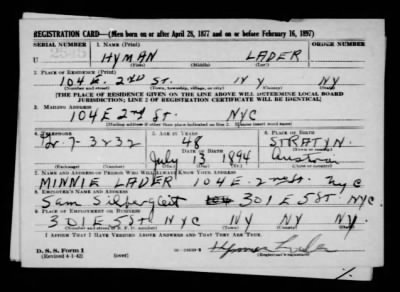 REGISTRATION CARD—(Men born on or after April 28, 1877 and on or before February 16, 1897)
SERIAL NUMBER 1. NAME (Print) ORDER NUMBER
U HYMAN LADER
(First) (Middle) (Last)
2. PLACE OF RESIDENCE (Print)
104 E. 2ND ST. NY NY
(Number and street) (Town, township, village, or city) (County) (State)
[THE PLACE OF RESIDENCE GIVEN ON THE LINE ABOVE WILL DETERMINE LOCAL BOARD
JURISDICTION; LINE 2 OF REGISTRATION CERTIFICATE WILL BE IDENTICAL]
3. MAILING ADDRESS
104 E 2nd ST. NYC
4. TELEPHONE 5. AGE IN YEARS 6. PLACE OF BIRTH
7-3232 48 STRATIN
DATE OF BIRTH
July 13 1894 Austria
7. NAME AND ADDRESS OF PERSON WHO WILL ALWAYS KNOW YOUR ADDRESS
MINNIE LADER 104 E. 2nd St. NYC
8. EMPLOYER'S NAME AND ADDRESS
Sam 301 E 5 St. NYC
9. PLACE OF EMPLOYMENT OR BUSINESS
301 E 5 St NYC NY NY
(Number and street or R. F. D. number) (Town) (County) (State)
I AFFIRM THAT I HAVE VERIFIED ABOVE ANSWERS AND THAT THEY ARE TRUE.
D. S. S. Form 1
(Revised 4-1-42) (over)
Hyman Lader
(Registrant's signature)